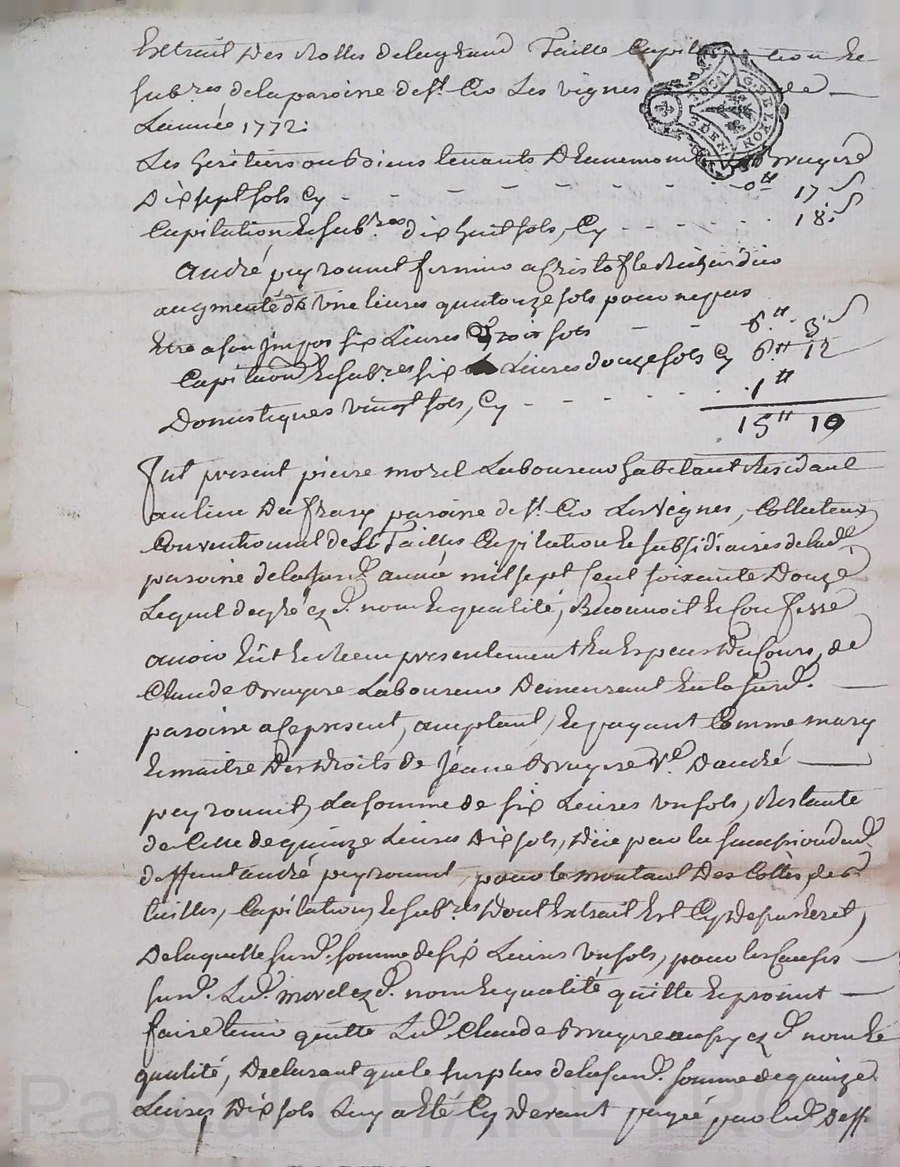 Extrait des Rolles de la grand Taille Capit tion et
Subres de la paroisse de St Cir Les vignes de
L'année 1772:
G. DE LYON
DEN
Les heritiers ou biens tenants Dennemon Bruyere
Dix sept sols Cy - - - - - - - - 0tt 17 s
Capitation et subres dix huit sols, Cy - - - - - 18 s
André peyronnet fermier a Cristofle
augmenté de une livres quatorze sols pour
Etre a son six Livres trois sols - - - 6tt 3 s
Capitaon et subres six Livres douze sols Cy 6tt 12
Domestiques vingt sols, Cy - - - - - - 1tt
15tt 10
Fut present pierre morel Laboureur habitant et Residant
au lieu Du frary paroisse de St Cir Les Vignes, Collecteur
Conventionnel des Tailles Capitation et subsidiaires de lade
paroisse de la surde année mil sept Cent soixante Douze
Lequel de gré ez de nom et qualité, Reconnoit et Confesse
avoir Eüt et Receu presentement En Especes Du Cours, de
Claude Bruyere Laboureur Demeurant En la surde
paroisse a Ce present, acceptant, et payant Comme mary
Et maitre Des Droits de Jeane Bruyere Ve D'andré
peyronnet, La somme de six Livres un sols, Restante
de Celle de quinze Livres Dix sols, Düe par la succession dud
deffunt andré peyronnet, pour le montant Des Cottes de
tailles, Capitation, et subres Dont Extrait Est Cy Devant Ecrit,
De laquelle surde somme de six Livres un sols, pour les Causes
surd. Led. morel ez d. nom et qualité quitte et promet
faire tenir quitte Led. Claude Bruyere aussy ez d. nom Et
qualité, Declarant que le surplus de la surde somme de quinze
Livres Dix sols Luy a Eté Cy Devant payée par led. Deff
Pascal CHAREYRON